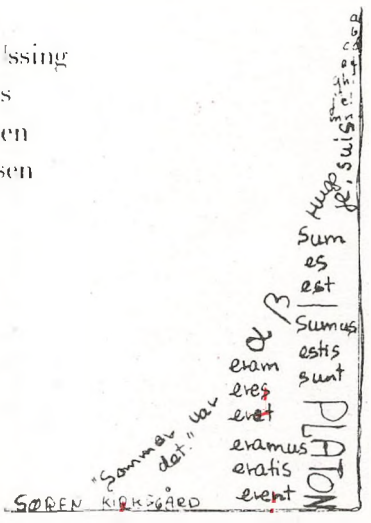 ssing
s
en
sen
Hugo
je, suis
sum
es
est
sumus
estis
sunt
α β
eram
eres
eret
eramus
eratis
erent
PLATON
"Sommer var
det."
SØREN KIRKSGÅRD